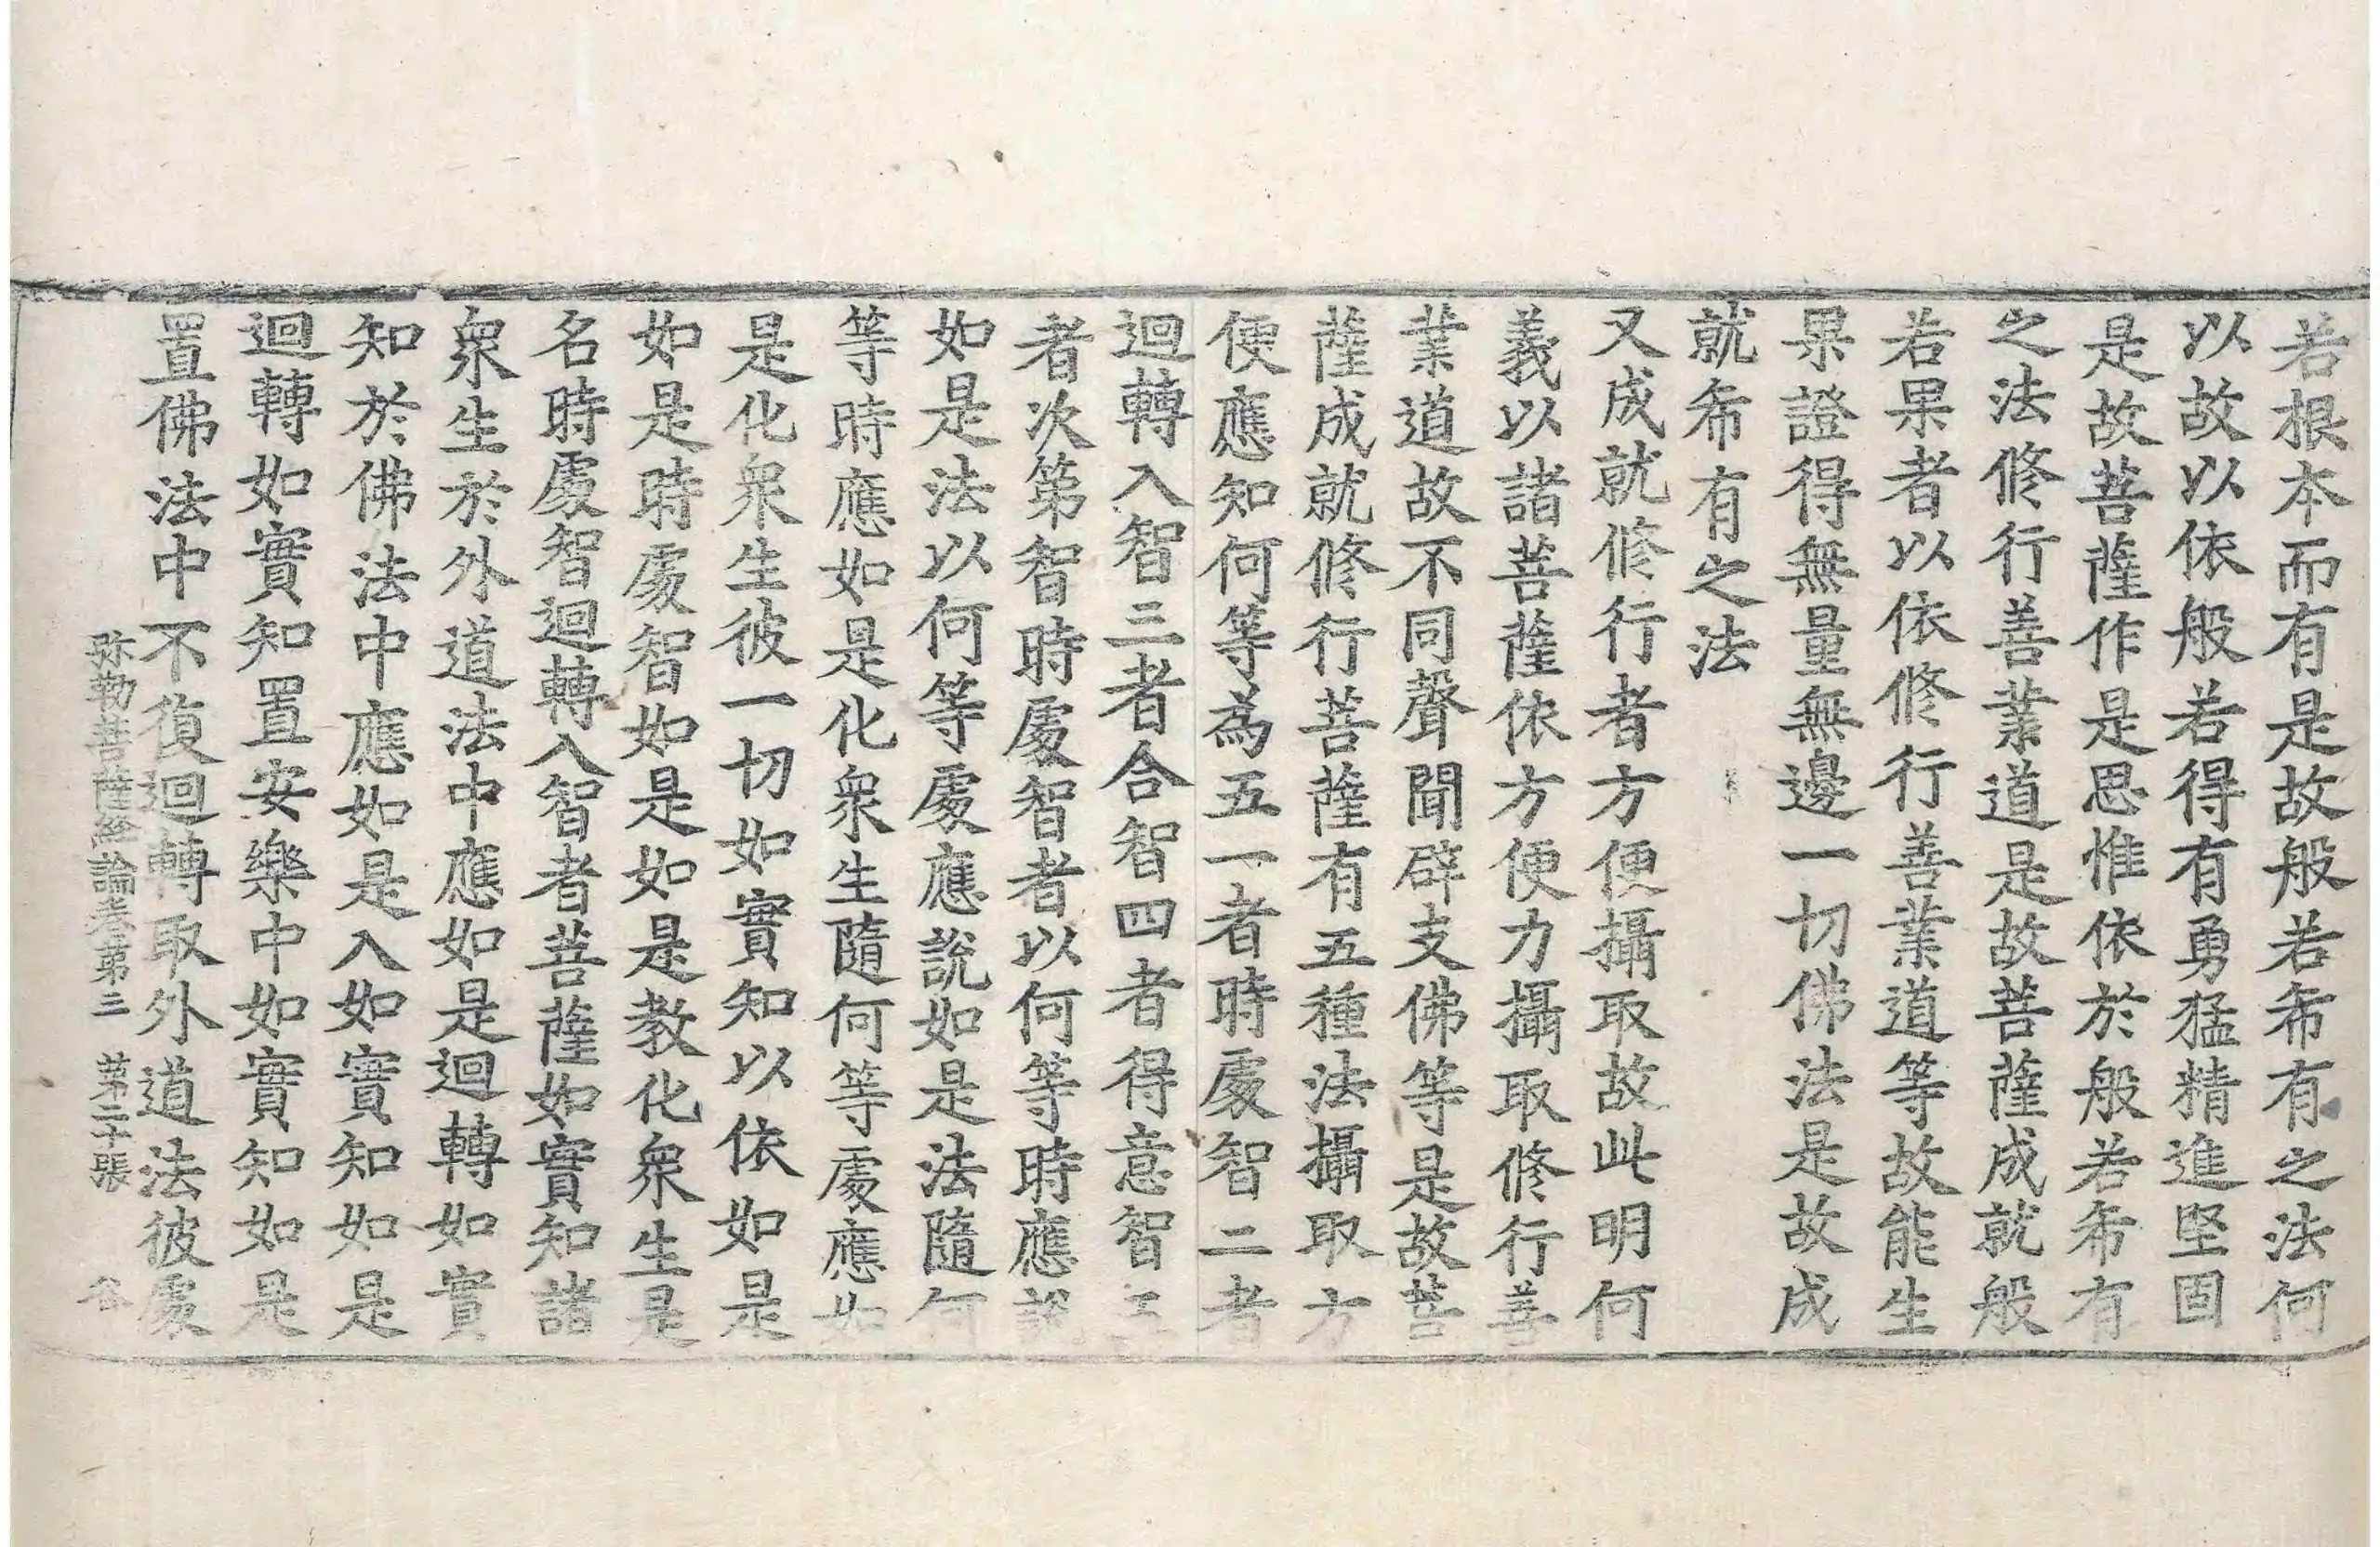 若根本而有是故般若希有之法何
以故以依般若得有勇猛精進堅固
是故菩薩作是思惟依於般若希有
之法修行善業道是故菩薩成就般
若果者以依修行善業道等故能生
果證得無量無邊一切佛法是故成
就希有之法
又成就修行者方便攝取故此明何
義以諸菩薩依方便力攝取修行善
業道故不同聲聞辟支佛等是故菩
薩成就修行菩薩有五種法攝取方
便應知何等為五一者時處智二者
迴轉入智三者合智四者得意智五
者次第智時處智者以何等時應說
如是法以何等處應說如是法隨何
等時應如是化衆生隨何等處應如
是化衆生彼一切如實知以依如是
如是時處智如是如是教化衆生是
名時處智迴轉入智者菩薩如實知諸
衆生於外道法中應如是迴轉如實
知於佛法中應如是入如實知如是
迴轉如實知置安樂中如實知如是
置佛法中不復迴轉取外道法彼處
弥勒菩薩經論卷第三 第二十張 谷